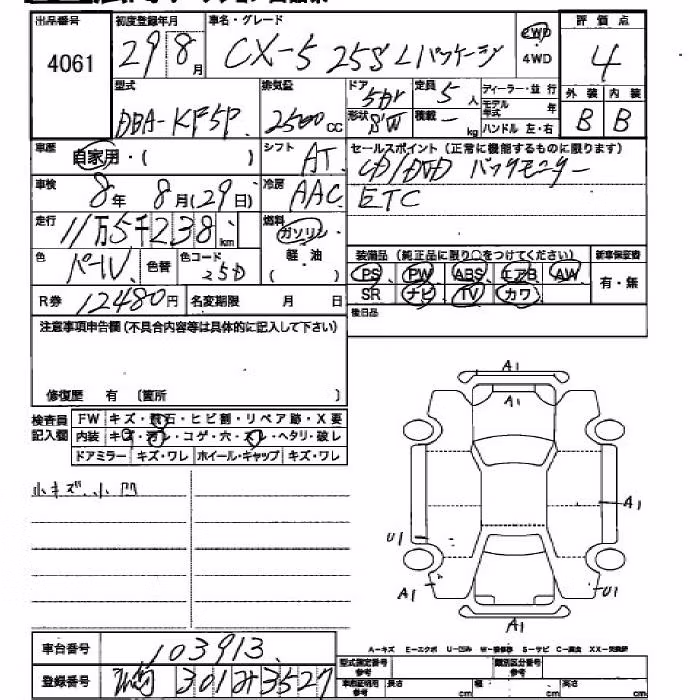 出品番号 初度登録年月 車名・グレード 2WD 評価点
4061 29 8月 CX-5 25S Lパッケージ 4WD 4
型式 排気量 ドア 5Dr 定員 5人 ディーラー・並行 外装 内装
DBA-KF5P 2500cc 形状 SW 積載 ー kg モデル年式 年 B B
ハンドル 左・右
車歴 自家用・( ) シフト AT セールスポイント(正常に機能するものに限ります)
CD/DVD バックモニター
車検 8年 8月(29日) 冷房 AAC ETC
走行 11万5千238km 燃料 ガソリン
軽油
( )
色 パール 色替 色コード 25D 装備品(純正品に限り○をつけてください) 新車保証書
PS PW ABS エアB AW 有・無
R券 12480円 名変期限 月 日 SR ナビ TV カワ
注意事項申告欄(不具合内容等は具体的に記入して下さい) 後日品
修復歴 有 〔箇所 〕
検査員記入欄 FW キズ・飛石・ヒビ割・リペア跡・X要
内装 キズ・汚レ・コゲ・穴・スレ・ヘタリ・破レ
ドアミラー キズ・ワレ ホイール・キャップ キズ・ワレ
小キズ、小凹
A1
A1
A1
U1
A1
U1
A1
A-キズ E-エクボ U-凹み W-補修跡 S-サビ C-腐食 XX-交換済
車台番号 103913
型式指定番号 類別区分番号
参考 参考
登録番号 301 3527
車庫証明用参考 長さ cm 幅 cm 高さ cm